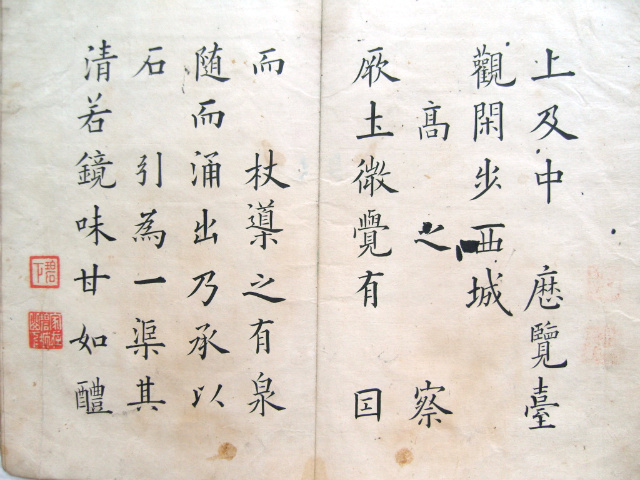 上及中 歷覽臺
觀閑步西城
高之 察
厥土微覺有 囙
而 杖導之有泉
随而涌出乃承以
石 引為一渠其
清若鏡味甘如醴